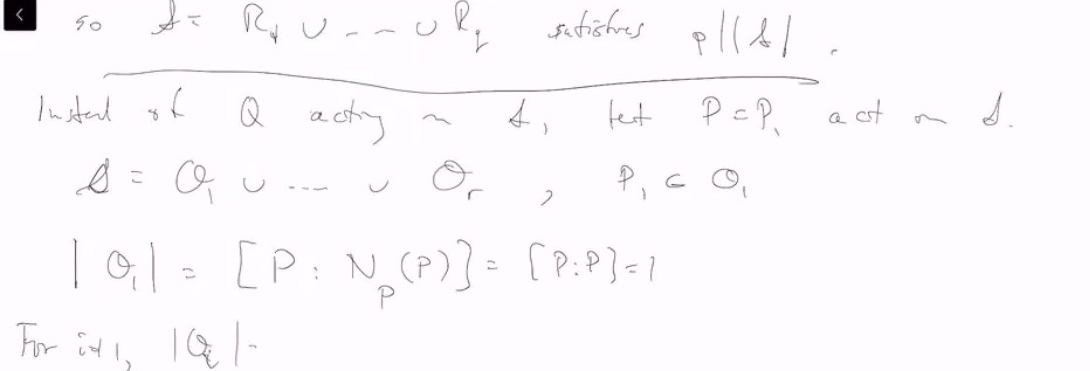 so S = R_1 ∪ --- ∪ R_q satisfies p | |S| .
Instead of Q acting on S, let P = P_1 act on S.
S = O_1 ∪ --- ∪ O_r , P_1 ∈ O_1
|O_1| = [P : N_P(P)] = [P:P] = 1
For i≠1, |O_i| =